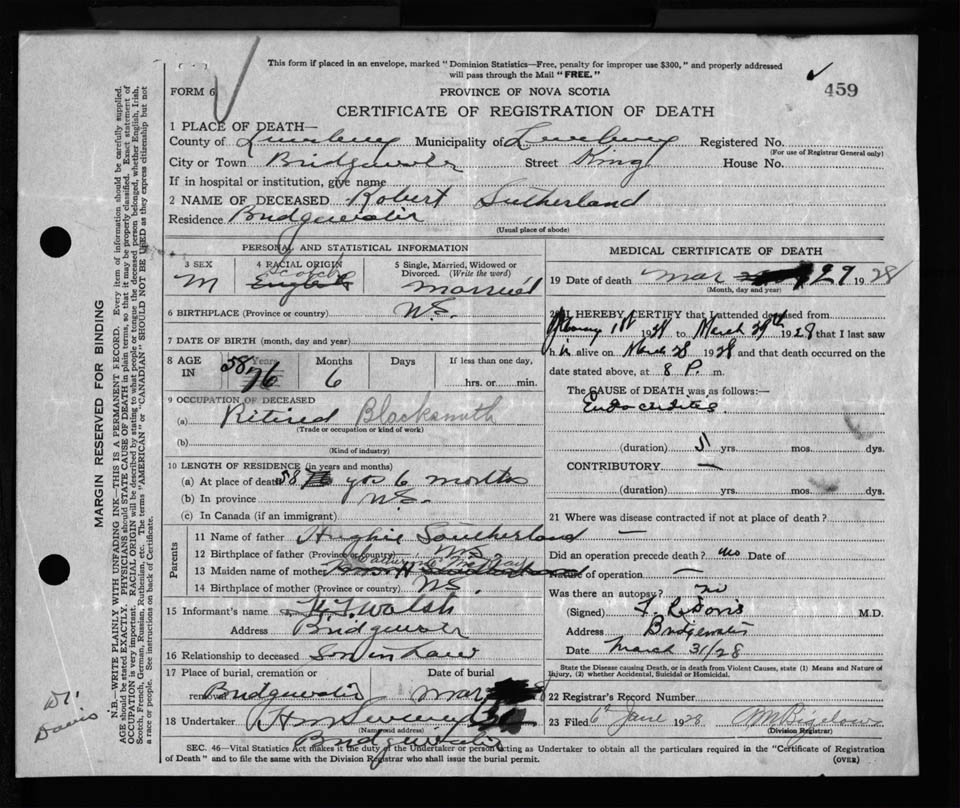 This form if placed in an envelope, marked "Dominion Statistics—Free, penalty for improper use $300," and properly addressed
will pass through the Mail "FREE."
FORM 6
PROVINCE OF NOVA SCOTIA
459
CERTIFICATE OF REGISTRATION OF DEATH
1 PLACE OF DEATH—
County of Lunenburg Municipality of Lunenburg Registered No.
(For use of Registrar General only)
City or Town Bridgewater Street King House No.
If in hospital or institution, give name
2 NAME OF DECEASED Robert Sutherland
Residence Bridgewater
(Usual place of abode)
PERSONAL AND STATISTICAL INFORMATION
3 SEX
4 RACIAL ORIGIN
5 Single, Married, Widowed or
Divorced. (Write the word)
M
Scotch
English
Married
6 BIRTHPLACE (Province or country) N.S.
7 DATE OF BIRTH (month, day and year)
8 AGE IN
Years
Months
Days
If less than one day,
58 76
6
hrs. or min.
9 OCCUPATION OF DECEASED
(a) Retired Blacksmith
(Trade or occupation or kind of work)
(b)
(Kind of industry)
10 LENGTH OF RESIDENCE (in years and months)
(a) At place of death 58 yrs 6 months
(b) In province N.S.
(c) In Canada (if an immigrant)
Parents
11 Name of father Hughie Southerland
12 Birthplace of father (Province or country) N.S.
13 Maiden name of mother
14 Birthplace of mother (Province or country) N.S.
15 Informant's name Walsh
Address Bridgewater
16 Relationship to deceased Son in Law
17 Place of burial, cremation or
removal
Date of burial
Bridgewater Mar
18 Undertaker
(Name and address)
Bridgewater
MEDICAL CERTIFICATE OF DEATH
19 Date of death Mar 29 1928
(Month, day and year)
20 I HEREBY CERTIFY that I attended deceased from
1st 1928 to March 29th 1928 that I last saw
h im alive on March 28 1928 and that death occurred on
date stated above, at 8 P. m.
The CAUSE OF DEATH was as follows:—
Endocarditis
(duration) yrs. mos. dys.
CONTRIBUTORY —
(duration) yrs. mos. dys.
21 Where was disease contracted if not at place of death?
—
Did an operation precede death? no Date of
Nature of operation —
Was there an autopsy? no
(Signed) Davis M.D.
Address Bridgewater
Date March 31/28
State the Disease causing Death, or in death from Violent Causes, state (1) Means and Nature of
Injury, (2) whether Accidental, Suicidal or Homicidal.
22 Registrar's Record Number
23 Filed 6 June 1928 Bigelow
(Division Registrar)
SEC. 46—Vital Statistics Act makes it the duty of the Undertaker or person acting as Undertaker to obtain all the particulars required in the "Certificate of Registration
of Death" and to file the same with the Division Registrar who shall issue the burial permit.
(OVER)
MARGIN RESERVED FOR BINDING
N.B.—WRITE PLAINLY WITH UNFADING INK—THIS IS A PERMANENT RECORD. Every item of information should be carefully supplied.
AGE should be stated EXACTLY. PHYSICIANS should STATE CAUSE OF DEATH in plain terms, so that it may be properly classified. Exact statement of
OCCUPATION is very important. RACIAL ORIGIN will be described by stating to what people or tongue the deceased person belonged, whether English, Irish,
Scotch, French, German, Russian, Ruthenian, etc. The terms "AMERICAN" or "CANADIAN" SHOULD NOT BE USED as they express citizenship but not
a race or people. See instructions on back of Certificate.
Dr.
Davis